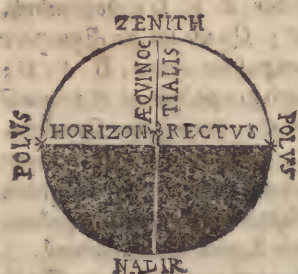 ZENITH
ÆQVINOC
TIALIS
POLVS
HORIZON RECTVS
POLVS
NADIR